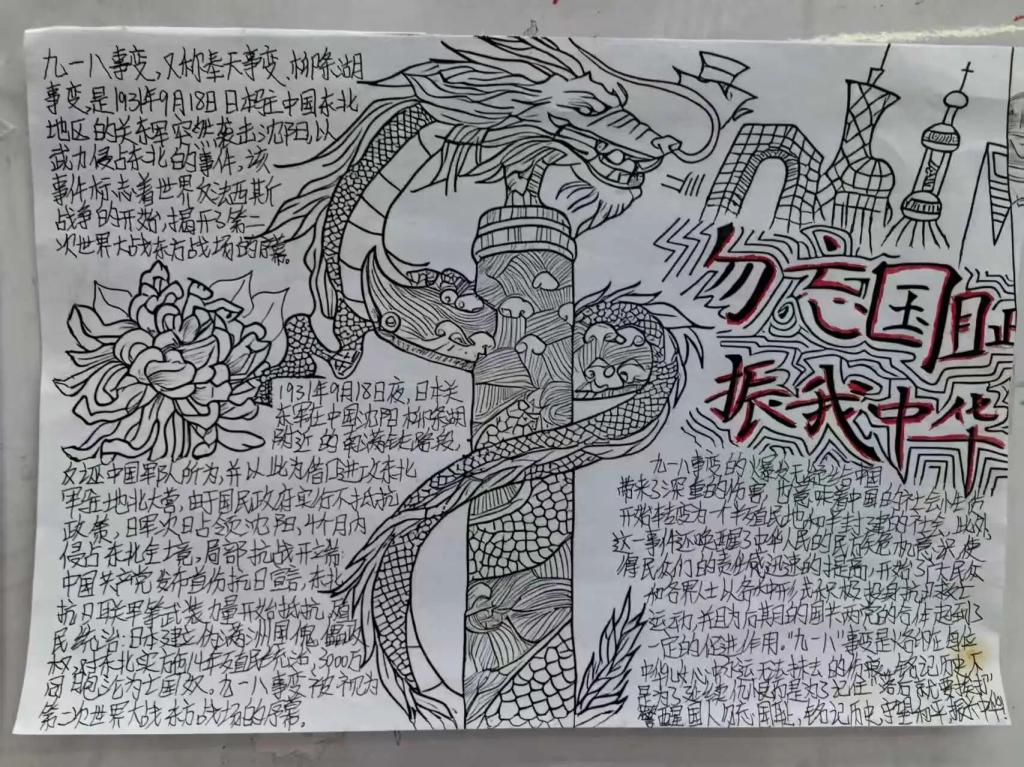 九一八事变,又称奉天事变、柳条湖
事变,是1931年9月18日日本驻中国东北
地区的关东军突然袭击沈阳,以
武力侵占东北的事件,该
事件标志着世界反法西斯
战争的开始,揭开了第二
次世界大战东方战场的序幕。
勿忘国耻
振我中华
1931年9月18日夜,日本关
东军在中国沈阳柳条湖
附近的南满铁路段,
反诬中国军队所为,并以此为借口进攻东北
军驻地北大营,由于国民政府实行不抵抗
政策,日军次日占领沈阳,4个月内
侵占东北全境,局部抗战开端
中国共产党发布首份抗日宣言,东北
抗日联军等武装力量开始抵抗
民统治:日本建立伪满洲国傀儡政
权,对东北实行14年殖民统治,3000万
同胞沦为亡国奴。九一八事变被视为
第二次世界大战东方战场的序幕。
九一八事变的爆发无疑给中国
带来了深重的伤害,也意味着中国的社会
开始转变为一个半殖民地和半封建的社会,此外
这一事件还唤醒了中华人民的民族意识,使
得民众们的责任感迅速的提高,开始了
和各界人士
运动,并且为后期的国共两党的合作起到了
一定的促进作用。"九一八"事变是烙印在每位
中华儿女心中永远无法抹去的伤痕。铭记历史不
是为了延续仇恨,而是为了
警醒国人勿忘国耻,铭记历史